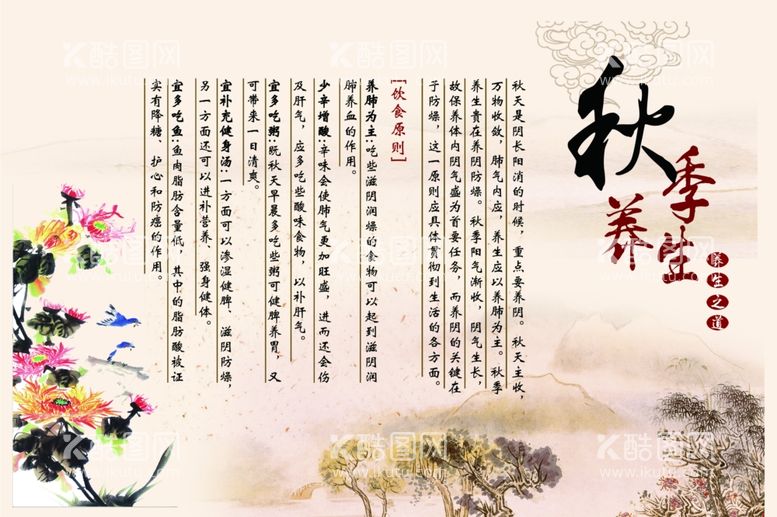 秋季养生
养生之道
秋天是阴长阳消的时候，重点要养阴。秋天主收，
万物收敛，肺气内应，养生应以养肺为主。秋季
养生贵在养阴防燥。秋季阳气渐收，阴气生长，
故保养体内阴气盛为首要任务，而养阴的关键在
于防燥，这一原则应具体贯彻到生活的各方面。
【饮食原则】
养肺为主：吃些滋阴润燥的食物可以起到滋阴润
肺养血的作用。
少辛增酸：辛味会使肺气更加旺盛，进而还会伤
及肝气，应多吃些酸味食物，以补肝气。
宜多吃粥：既秋天早晨多吃些粥可健脾养胃，又
可带来一日清爽。
宜补充健身汤：一方面可以渗湿健脾、滋阴防燥，
另一方面还可以进补营养、强身健体。
宜多吃鱼：鱼肉脂肪含量低，其中的脂肪酸被证
实有降糖、护心和防癌的作用。
酷图网
www.ikutu.com